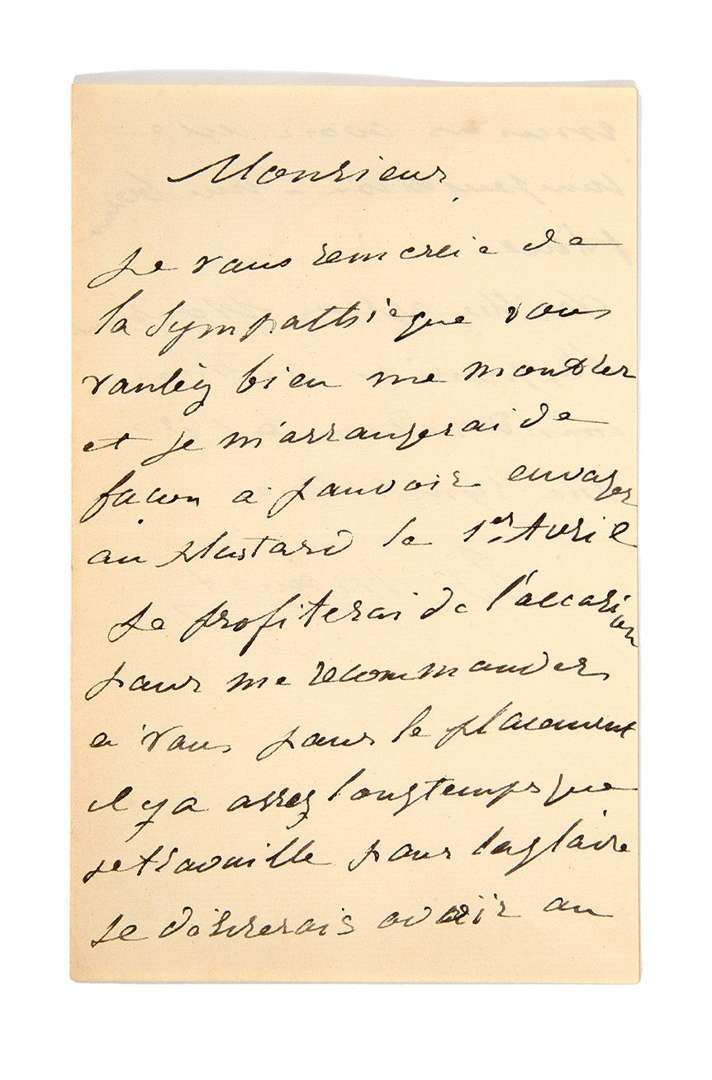 Monsieur,
Je vous remercie de
la sympathie que vous
voulez bien me montrer
et je m'arrangerai de
facon a pouvoir envoyer
au plustard le 1er Avril
Je profiterai de l'occasion
pour me recommander
a vous pour le placement
il y a assez longtemps que
je travaille pour la gloire
je désirerais avoir au